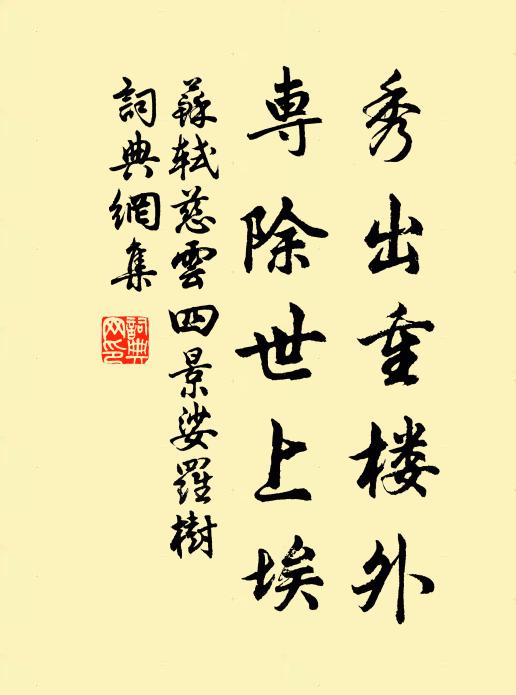 秀出重楼外
専除世上埃
蘇軾慈雲四景娑羅樹
詞典網集
詞典网印